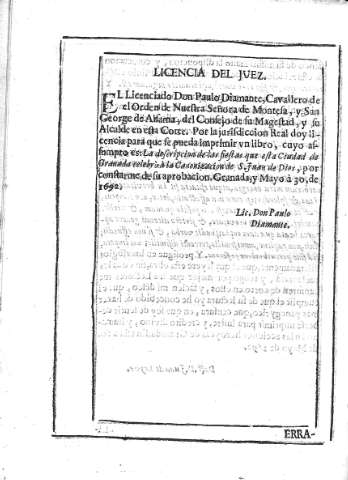 LICENCIA DEL JUEZ.
EL Licenciado Don Paulo Diamante, Cavallero de
el Orden de Nuestra Señora de Montesa, y San
George de Alfama, del Consejo de su Magestad, y su
Alcalde en esta Corte. Por la jurisdiccion Real doy li-
cencia para que se pueda imprimir vn libro, cuyo as-
sumpto es: La descripcion de las fiestas que esta Ciudad de
Granada celebrò à la Canonizacion de S. Juan de Dios, por
constarme de su aprobacion. Granada, y Mayo à 30. de
1692.
Lic. Don Paulo
Diamante.
ERRA-